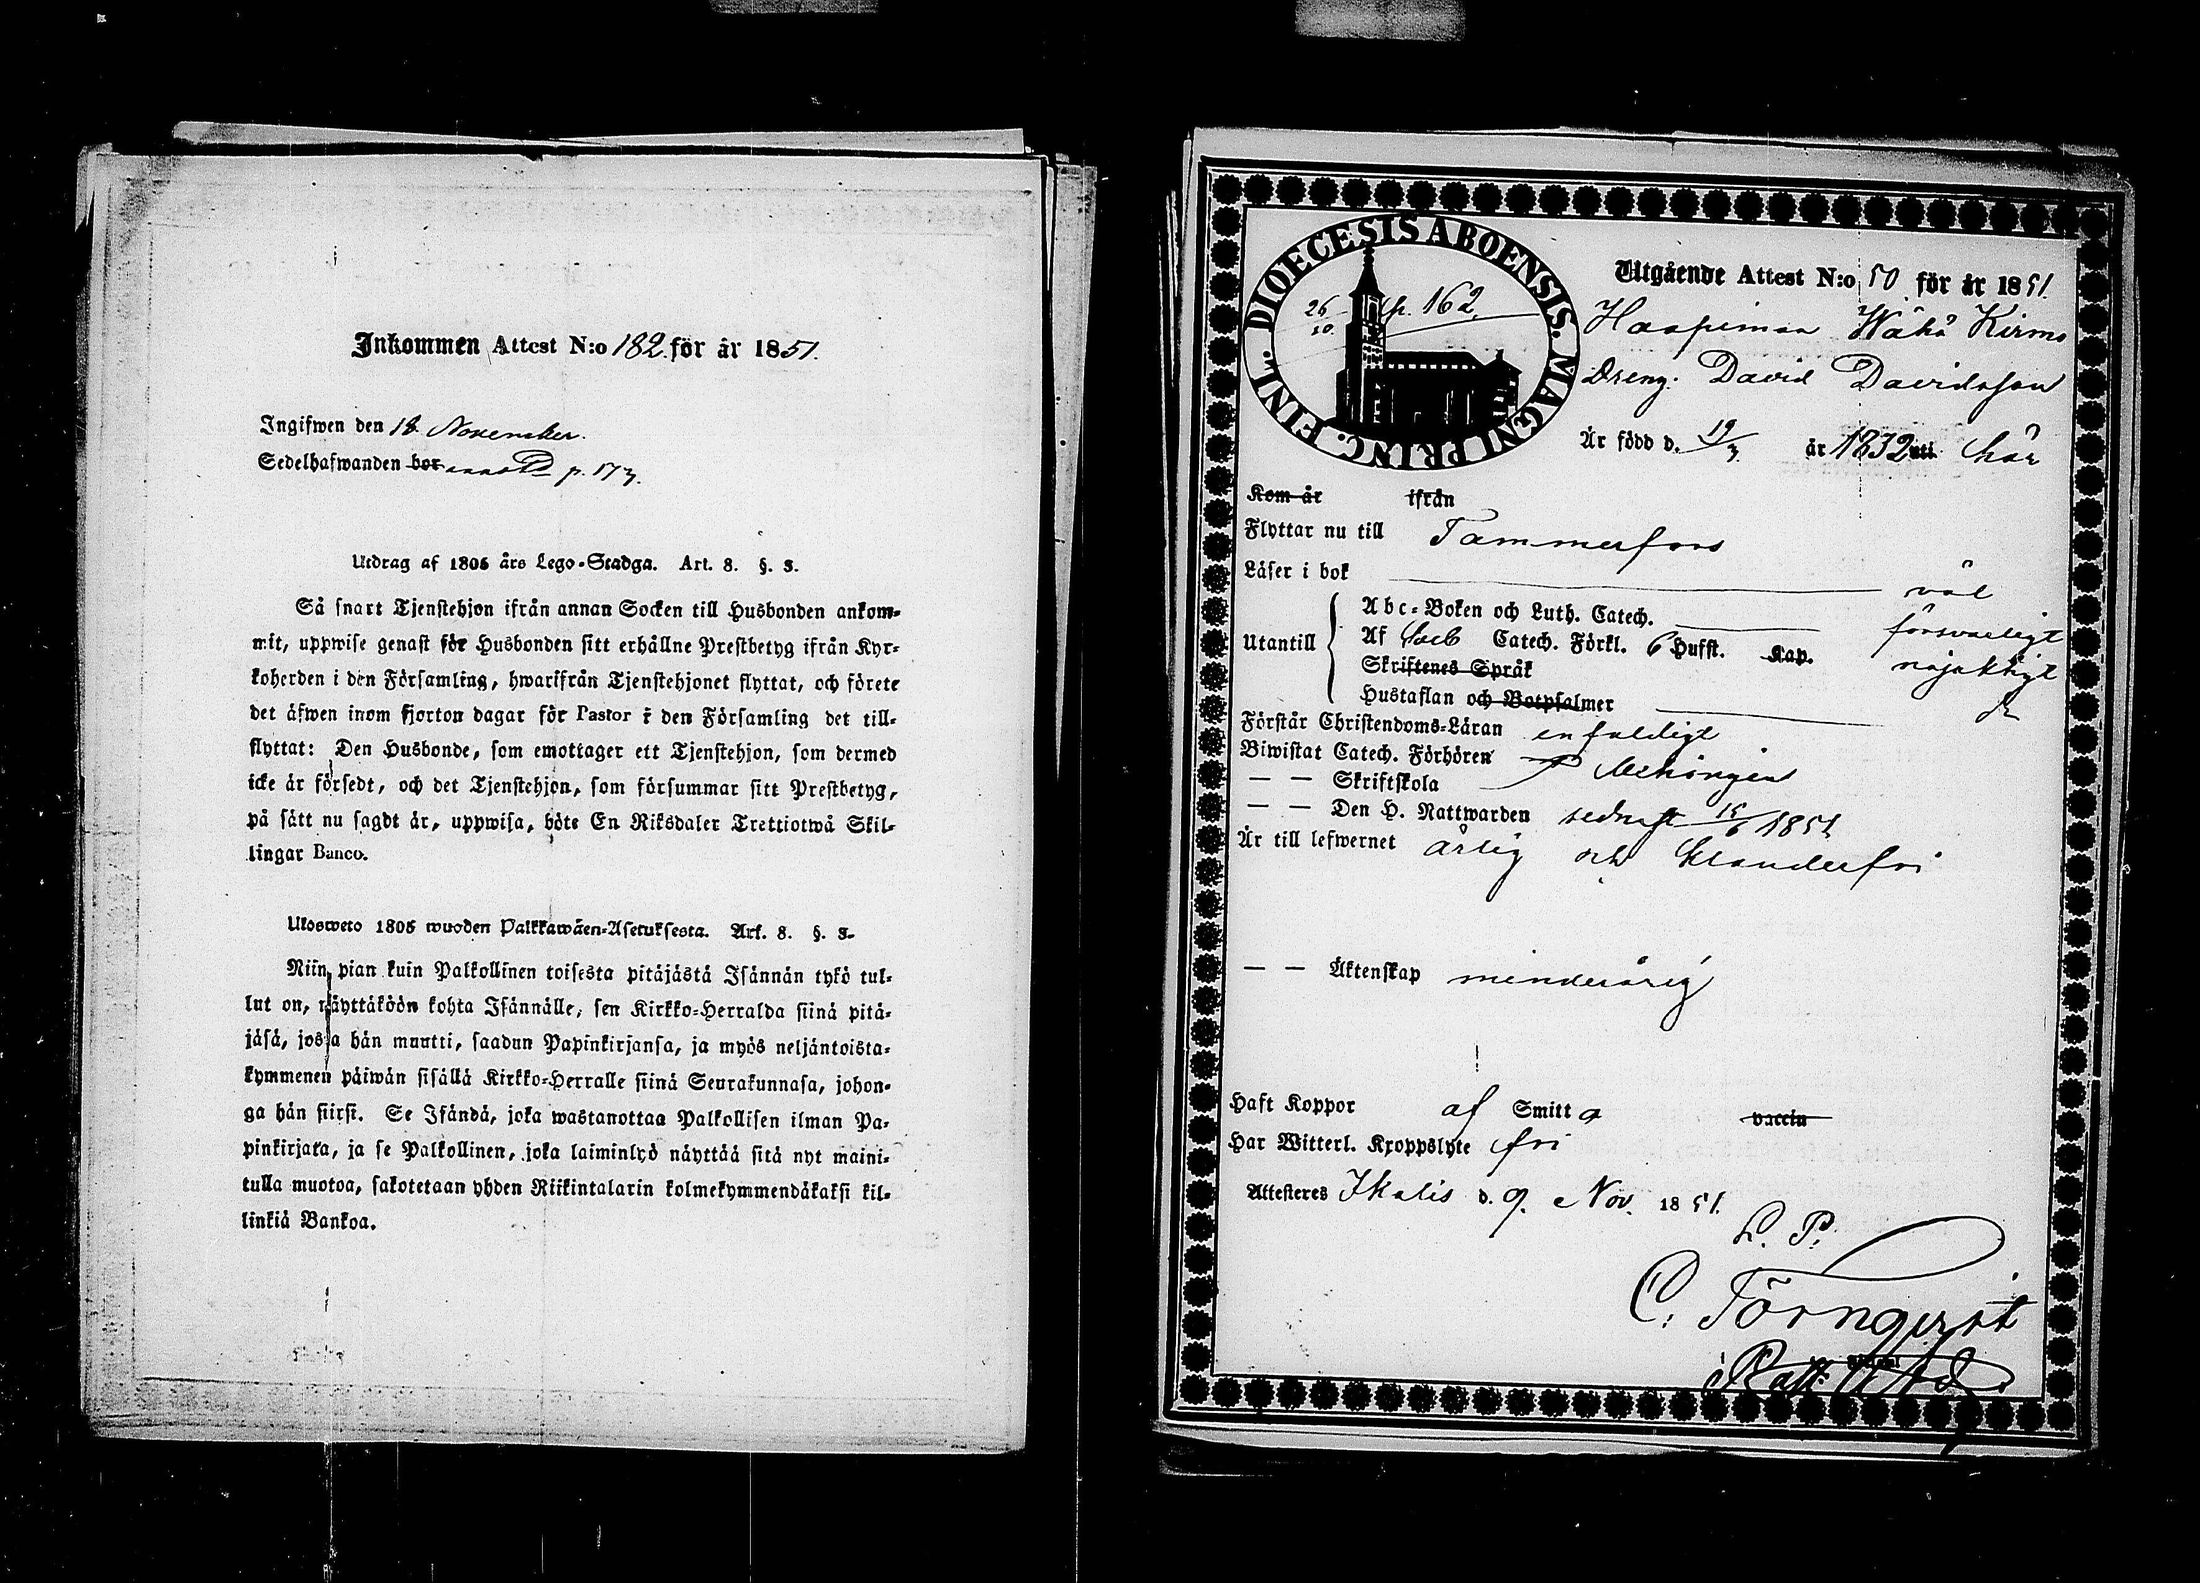 Inkommen Attest N:o 182. för år 1851.
Ingifwen den 18. November.
Sedelhafwanden bor p. 173.
Utdrag af 1805 års Lego-Stadga. Art. 8. §. 3.
Så snart Tjenstehjon ifrån annan Socken till Husbonden ankom-
mit, uppwise genast för Husbonden sitt erhållne Prestbetyg ifrån Kyr-
koherden i den Församling, hwarifrån Tjenstehjonet flyttat, och förete
det äfwen inom fjorton dagar för Pastor i den Församling det till-
flyttat: Den Husbonde, som emottager ett Tjenstehjon, som dermed
icke är försedt, och det Tjenstehjon, som försummar sitt Prestbetyg,
på sätt nu sagdt är, uppwisa, böte En Riksdaler Trettiotwå Skil-
lingar Banco.
Ulosweto 1805 wuoden Palkkawäen-Asetuksesta. Art. 8. §. 3.
Niin pian kuin Palkollinen toisesta pitäjästä Isännän tykö tul-
lut on, näyttäköön kohta Isännälle, sen Kirkko-Herralda siinä pitä-
jäsä, josta hän muutti, saadun Papinkirjansa, ja myös neljäntoista-
kymmenen päiwän sisällä Kirkko-Herralle siinä Seurakunnasa, johon-
ga hän siirsi. Se Isändä, joka wastanottaa Palkollisen ilman Pa-
pinkirjata, ja se Palkollinen, joka laiminlyö näyttää sitä nyt maini-
tulla muotoa, sakotetaan yhden Riikintalarin kolmekymmendäkaksi kil-
linkiä Bankoa.
DIOECESIS ABOENSIS. MAGNI PRINC. FINL.
26/10. p. 162.
Utgående Attest N:o 50 för år 1851.
Haapimaa Wähä Kirmo
Dreng. David Davidsson
Är född d. 19/3. år 1832 uti här
Kom år ifrån
Flyttar nu till Tammerfors
Läser i bok väl
Abc-Boken och Luth. Catech. försvarligt
Utantill Af Catech. Förkl. 6 Hufst. Kap. nöjaktigt
Skriftenes Språk
Hustaflan och Botpsalmer
Förstår Christendoms-Läran enfaldigt
Biwistat Catech. Förhören
— — Skriftskola behörigen
— — Den H. Nattwarden sednast 15/6 1851
Är till lefwernet ärlig och klanderfri
— — Äktenskap minderårig
Haft Koppor af Smitta vaccin
Har Witterl. Kroppslyte fri
Attesteres Ikalis d. 9. Nov. 1851.
L. P.
C. Törnqvist